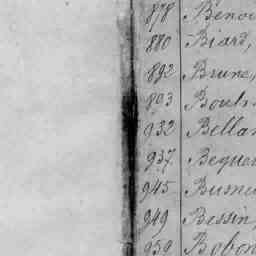 878 Benoi
880 Biard,
892 Brune,
893 Boutr
932 Bellan
937 Beque
945 Burne
949 Bessin,
959 Bobon